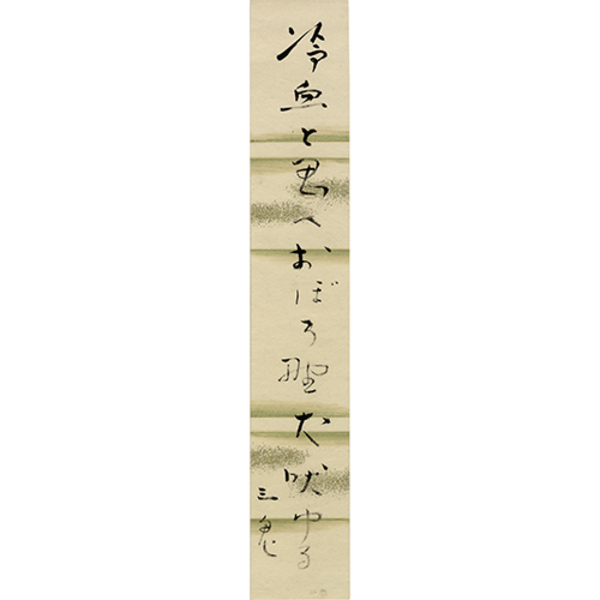 冷血と思へおぼろ野犬吠ゆる
三鬼